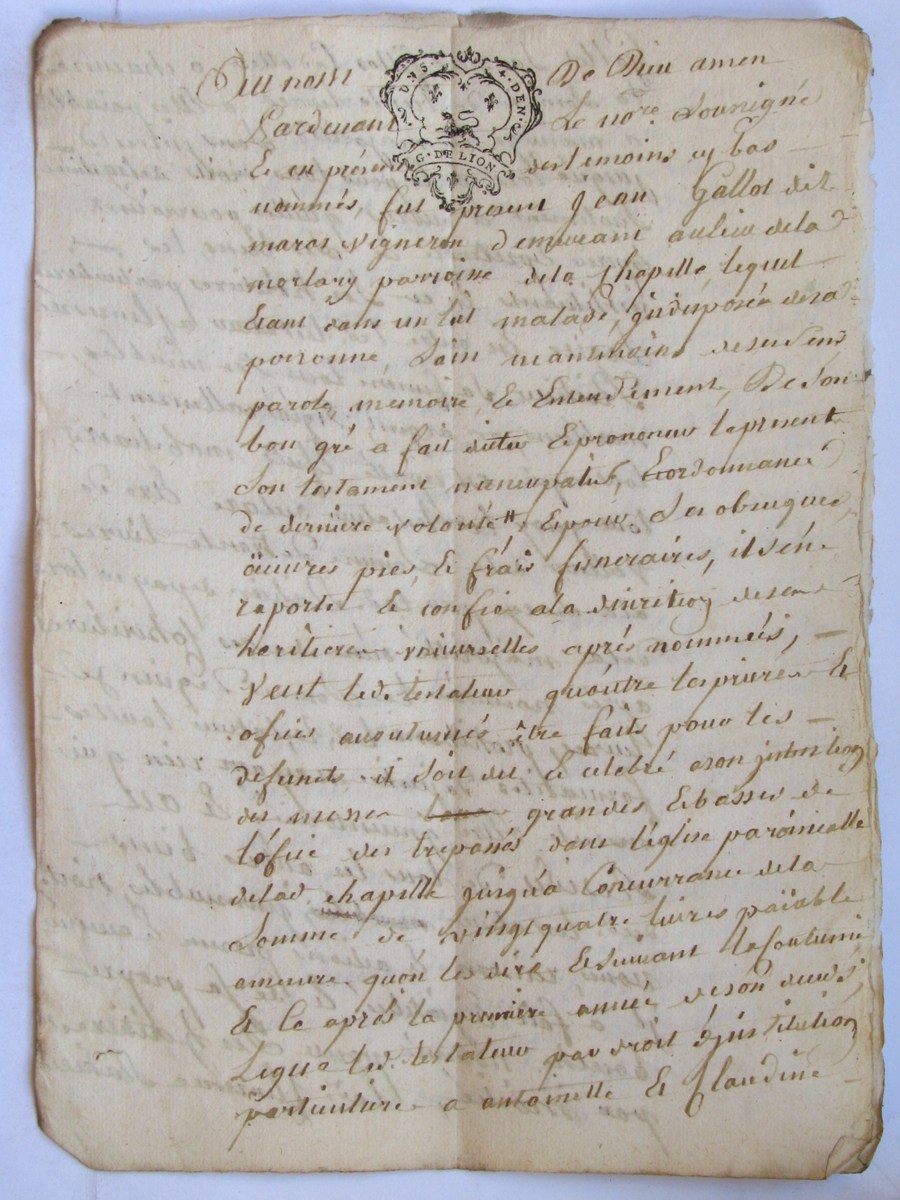 Au nom De Dieu amen
DNS. 4. DEN.
G. DE LION
Pardevant Le no.re Sousigné
Et en présence des temoins cy bas
nommés, fut présent Jean Gallot dit
maras vigneron demeurant au lieu de la
paroisse de la Chapelle lequel
Etant dans un lit malade, jndisposée de sa
personne, Sain neantmoins de ses Sens
parole, memoire, Et Entendement, De Son
bon gré a fait dicté Et prononcé le present
Son testament nuncupatif, Et ordonnance
de derniere volonté, Et pour Ses obseques
äuvres pies, Et fráis funeraires, il s'en
raporte Et confie a la direction de ses
heritieres universelles aprés nommées,
Veut led. testateur qu'outre les prieres Et
ofices acoutumés être faits pour les
defunts il soit dit Et celebré a son jntention
des messes grandes Et basses de
l'ofice des trepassés dans l'église paroissialle
de lad. chapelle jusqu'a Concurrance de la
Somme de vingt quatre livres païable
amesure qu'on les dira Et suivant la Coutume
Et ce aprés la premiere année de son decés,
Legue led. testateur par droit d'jnstitution
particuliere a antoinette Et Claudine